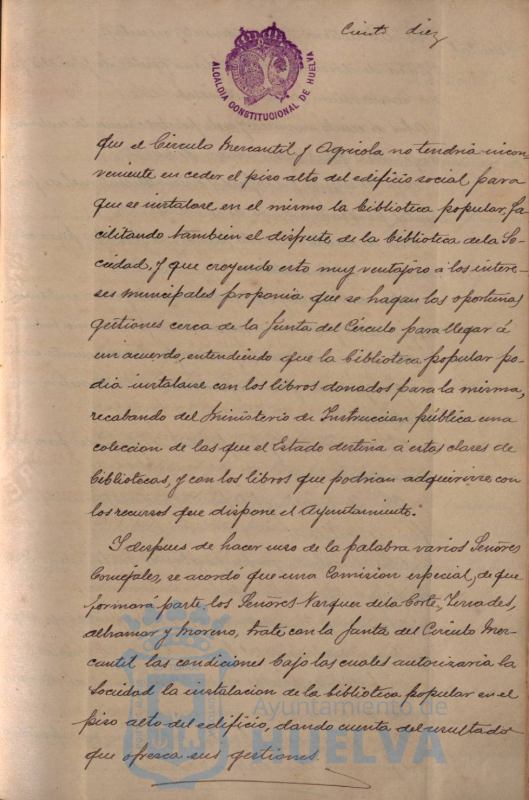 Ciento diez
ALCALDIA CONSTITUCIONAL DE HUELVA
que el Circulo Mercantil y Agricola no tendria incon-
veniente en ceder el piso alto del edificio social para
que se instalase en el mismo la biblioteca popular, fa
cilitando tambien el disfrute de la biblioteca de la So-
ciedad, y que creyendo esto muy ventajoso a los intere-
ses municipales proponia que se hagan las oportunas
gestiones cerca de la Junta del Círculo para llegar á
un acuerdo, entendiendo que la biblioteca popular po-
dia instalarse con los libros donados para la misma,
recabando del Ministerio de Instruccion pública una
coleccion de las que el Estado destina á estas clases de
bibliotecas, y con los libros que podrian adquirirse con
los recursos que dispone el Ayuntamiento."
Y despues de hacer uso de la palabra varios Señores
Concejales, se acordó que una Comision especial, de que
formará parte los Señores Vazquez de la Corte, Terrades,
Albramar y Moreno, trate con la Junta del Circulo Mer-
cantil las condiciones bajo las cuales autorizaria la
Sociedad la instalacion de la biblioteca popular en el
piso alto del edificio, dando cuenta del resultado
que ofrezca sus gestiones.
Ayuntamiento de
HUELVA